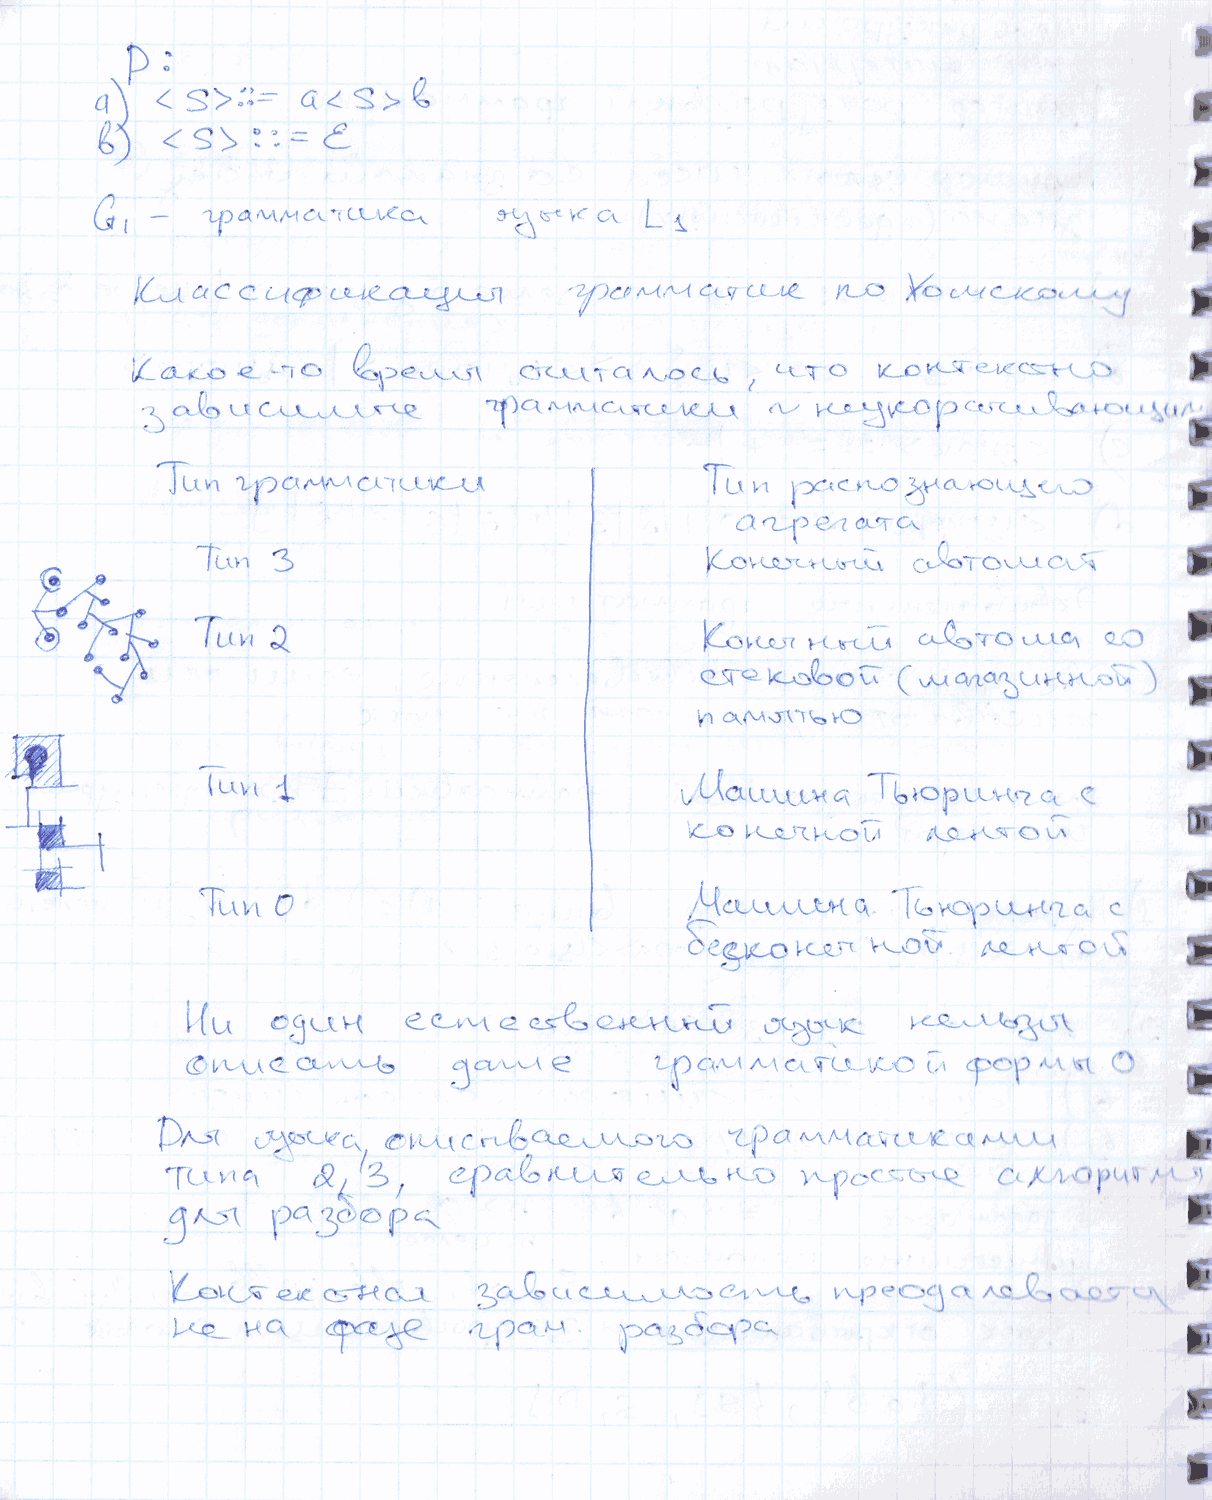 P:
a) <S>::= a<S>b
b) <S>::= ε
G₁ – грамматика языка L₁
Классификация грамматик по Хомскому
Какое-то время считалось, что контекстно
зависимые грамматики и неукорачивающим
Тип грамматики Тип распознающего
агрегата
Тип 3 Конечный автомат
Тип 2 Конечный автома со
стековой (магазинной)
памятью
Тип 1 Машина Тьюринга с
конечной лентой
Тип 0 Машина Тьюринга с
безконечной лентой
Ни один естественный язык нельзя
описать даже грамматикой формы 0
Для языка, описываемого грамматиками
типа 2, 3, сравнительно простые алгоритмы
для разбора
Контекстная зависимость преодалевается
не на фазе грам. разбора